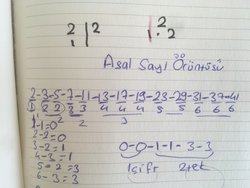 2 | 2
2
1 . 2
Asal Sayı Örüntüsü
2-3-5-7-11-13-17-19-23-29-31-37-41
1 2 2 3 4 4 4 5 5 6 6 6
2 2 3
1-1=0
2-2=0
3-2=1
4-3=1
5-2=3
6-3=3
0-0-1-1-3-3
1 çift 2 tek